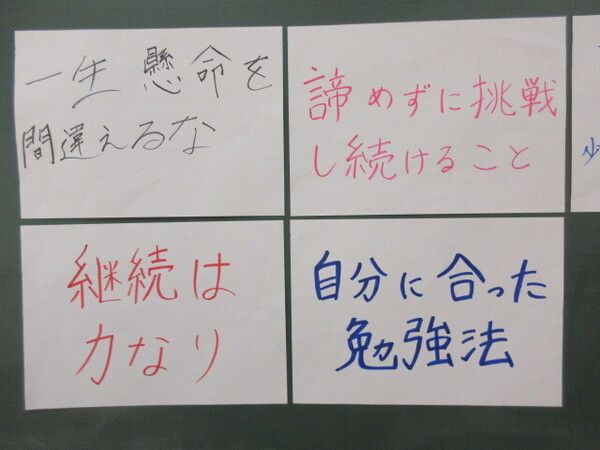 一生懸命を
間違えるな
諦めずに挑戦
し続けること
継続は
力なり
自分に合った
勉強法